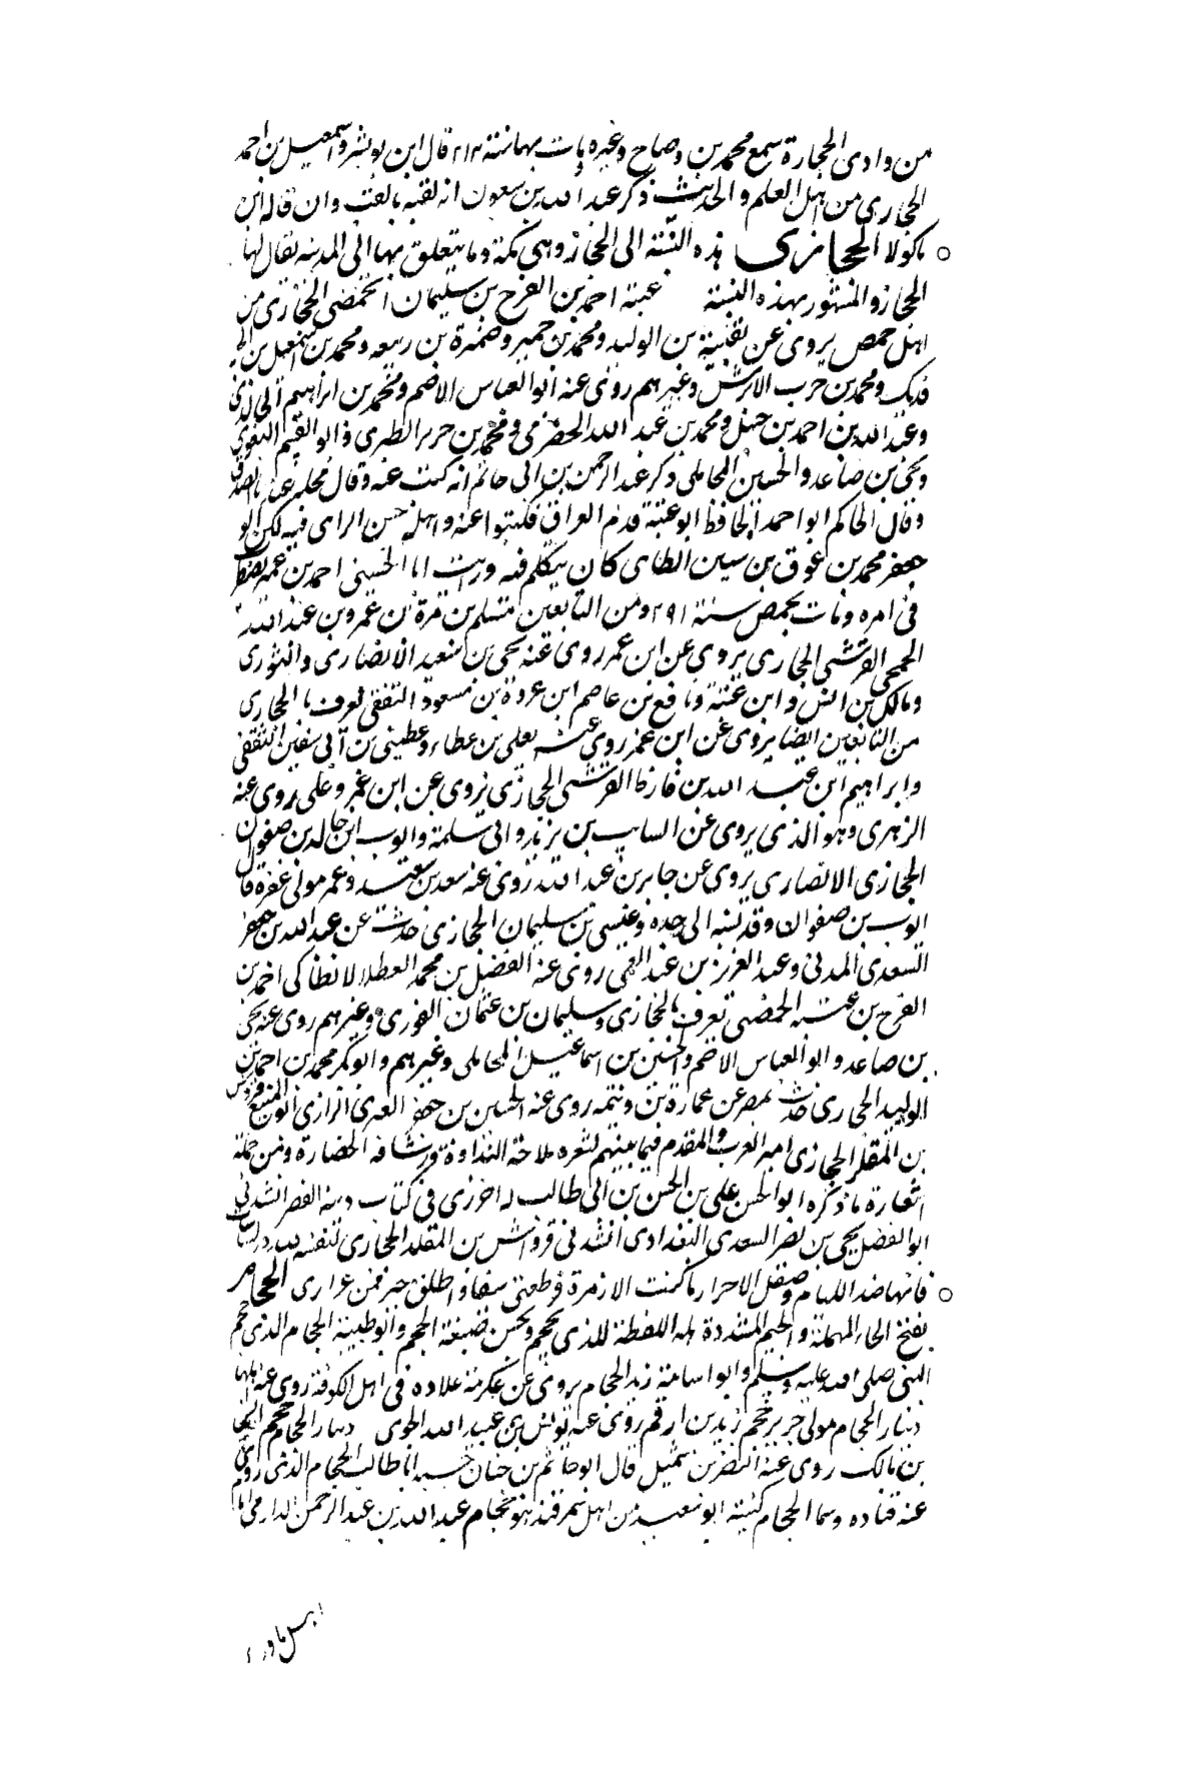 من وادى الحجارة سمع محمد بن وضاح وغيره مات بها سنة ٣١٢ قال ابن يونس واسمعيل بن احمد
الحجارى من اهل العلم والحديث ذكر عبد الله بن سعون انه لقيه بالغب وان قاله ابن
ماكولا الحجازى هذه النسبة الى الحجاز وهى مكة وما يتعلق بها الى المدينه يقال لها
الحجاز والمشهور بهذه النسبة عتبة احمد بن الفرج بن سليمان الحمصى الحجازى من
اهل حمص يروى عن بقية بن الوليد ومحمد بن حمير وضمرة بن ربيعه ومحمد بن اسمعيل بن ابى
فديك ومحمد بن حرب الابرش وغيرهم روى عنه ابوالعباس الاصم ومحمد بن ابراهيم
وعبد الله بن احمد بن حنبل ومحمد بن عبد الله الحضرمى ومحمد بن جرير الطبرى وابو القسم البغوى
ويحيى بن صاعد والحسين المحاملى وذكر عبد الرحمن بن ابى حاتم انه كتب عنه وقال محله عندنا الصدق
وقال الحاكم ابو احمد الحافظ ابو عتبة قدم العراق فكتبوا عنه واهلها حسن الراى فيه لكن ابو
جعفر محمد بن عوف بن سفين الطاى كان يتكلم فيه ورايت ابا الحسن احمد بن عمير يضعف
فى امره ومات بحمص سنة ٢٩١ ومن التابعين مسلم بن مرة بن عمرو بن عبد الله
الجمحى القرشى الحجازى يروى عن ابن عمر روى عنه يحيى بن سعيد الانصارى والثورى
ومالك بن انس وابن عيينة ونافع بن عاصم ابن عروة بن مسعود الثقفى يعرف بالحجازى
من التابعين ايضا يروى عن ابن عمر روى عنه يعلى بن عطاء بن ابى سفين الثقفى
وابراهيم ابن عبد الله بن قارظ القرشى الحجازى يروى عن ابن عمر وعلى روى عنه
الزهرى وهو الذى يروى عن السايب بن يزيد وابى سلمة وايوب ابن خالد بن صفوان
الحجازى الانصارى يروى عن جابر بن عبد الله روى عنه سعد بن سعيد وعمر مولى غفرة قال
ايوب بن صفوان وقد نسبه الى جده وعيسى بن سليمان الحجازى حدث عن عبد الله بن جعفر
السعدى المدنى وعبد العزيز بن عبد روى عنه الفضل بن محمد العطار الانطاكى احمد بن
الفرج بن عتبه الحمصى يعرف بالحجازى وسليمان بن عثمان الفوزى وغيرهم روى عنه يحيى
بن صاعد وابو العباس الاصم والحسين بن اسماعيل المحاملى وغيرهم وابو بكر محمد بن احمد بن
الوليد الحجازى حدث بمصر عن عمارة بن وثيمه روى عنه الحسين بن جعفر العنزى الرازى ابو المنيع قرواش
بن المقلد الحجازى امير العرب والمقدم فيما بينهم لشعره ملاحة البداوة ورشاقه الحضارة ومن جملة
اشعاره ما ذكره ابو الحسن على بن الحسن بن ابى طالب الباخرزى فى كتاب دمية القصر انشدنى
ابو الفضل يحيى بن نصر السعدى البغدادى انشدنى قرواش بن المقلد الحجازى لنفسه
فانها صدا اللئام وصيقل الاحرار ما كنت الا زبرة فطبعتنى سيفا واطلق حرفهن غرارى الحجام
بفتح الحاء المهملة والجيم المشددة هذه اللفظة للذى يحجم ويحسن صنعة الحجم وابو طيبة الحجام الذى حجم
النبى صلى الله عليه وسلم وابو اسامة زيد الحجام يروى عن عكرمة عداده فى اهل الكوفة روى عنه
دينار الحجام مولى جرير حجم زيد بن ارقم روى عنه يونس بن عبد الله الجرمى دينار الحجام حجم انس
بن مالك روى عنه النضر بن شميل قال ابو حاتم بن حبان احسبه ابا طالب الحجام الذى روى
عنه قتاده وسما الحجام كنيته ابو سعيد من اهل سمرقند هو حجام عبد الله بن عبد الرحمن الدارمى